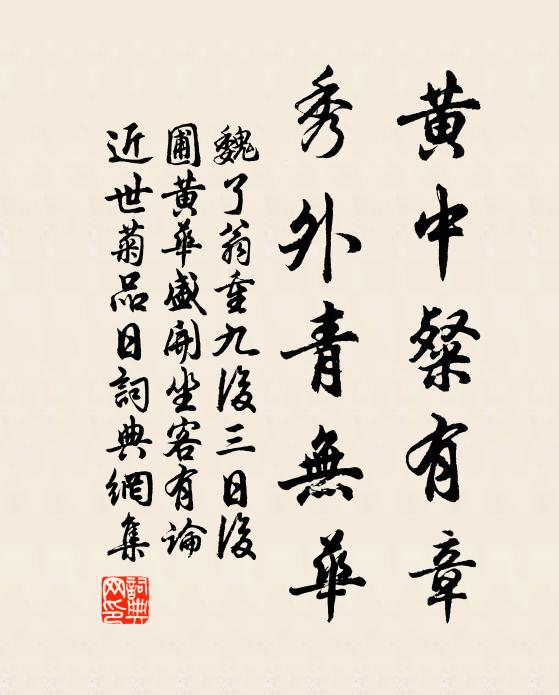 黄中粲有章
秀外青無華
魏了翁重九後三日後
圃黄華盛開坐客有論
近世菊品日詞典網集
詞典網印